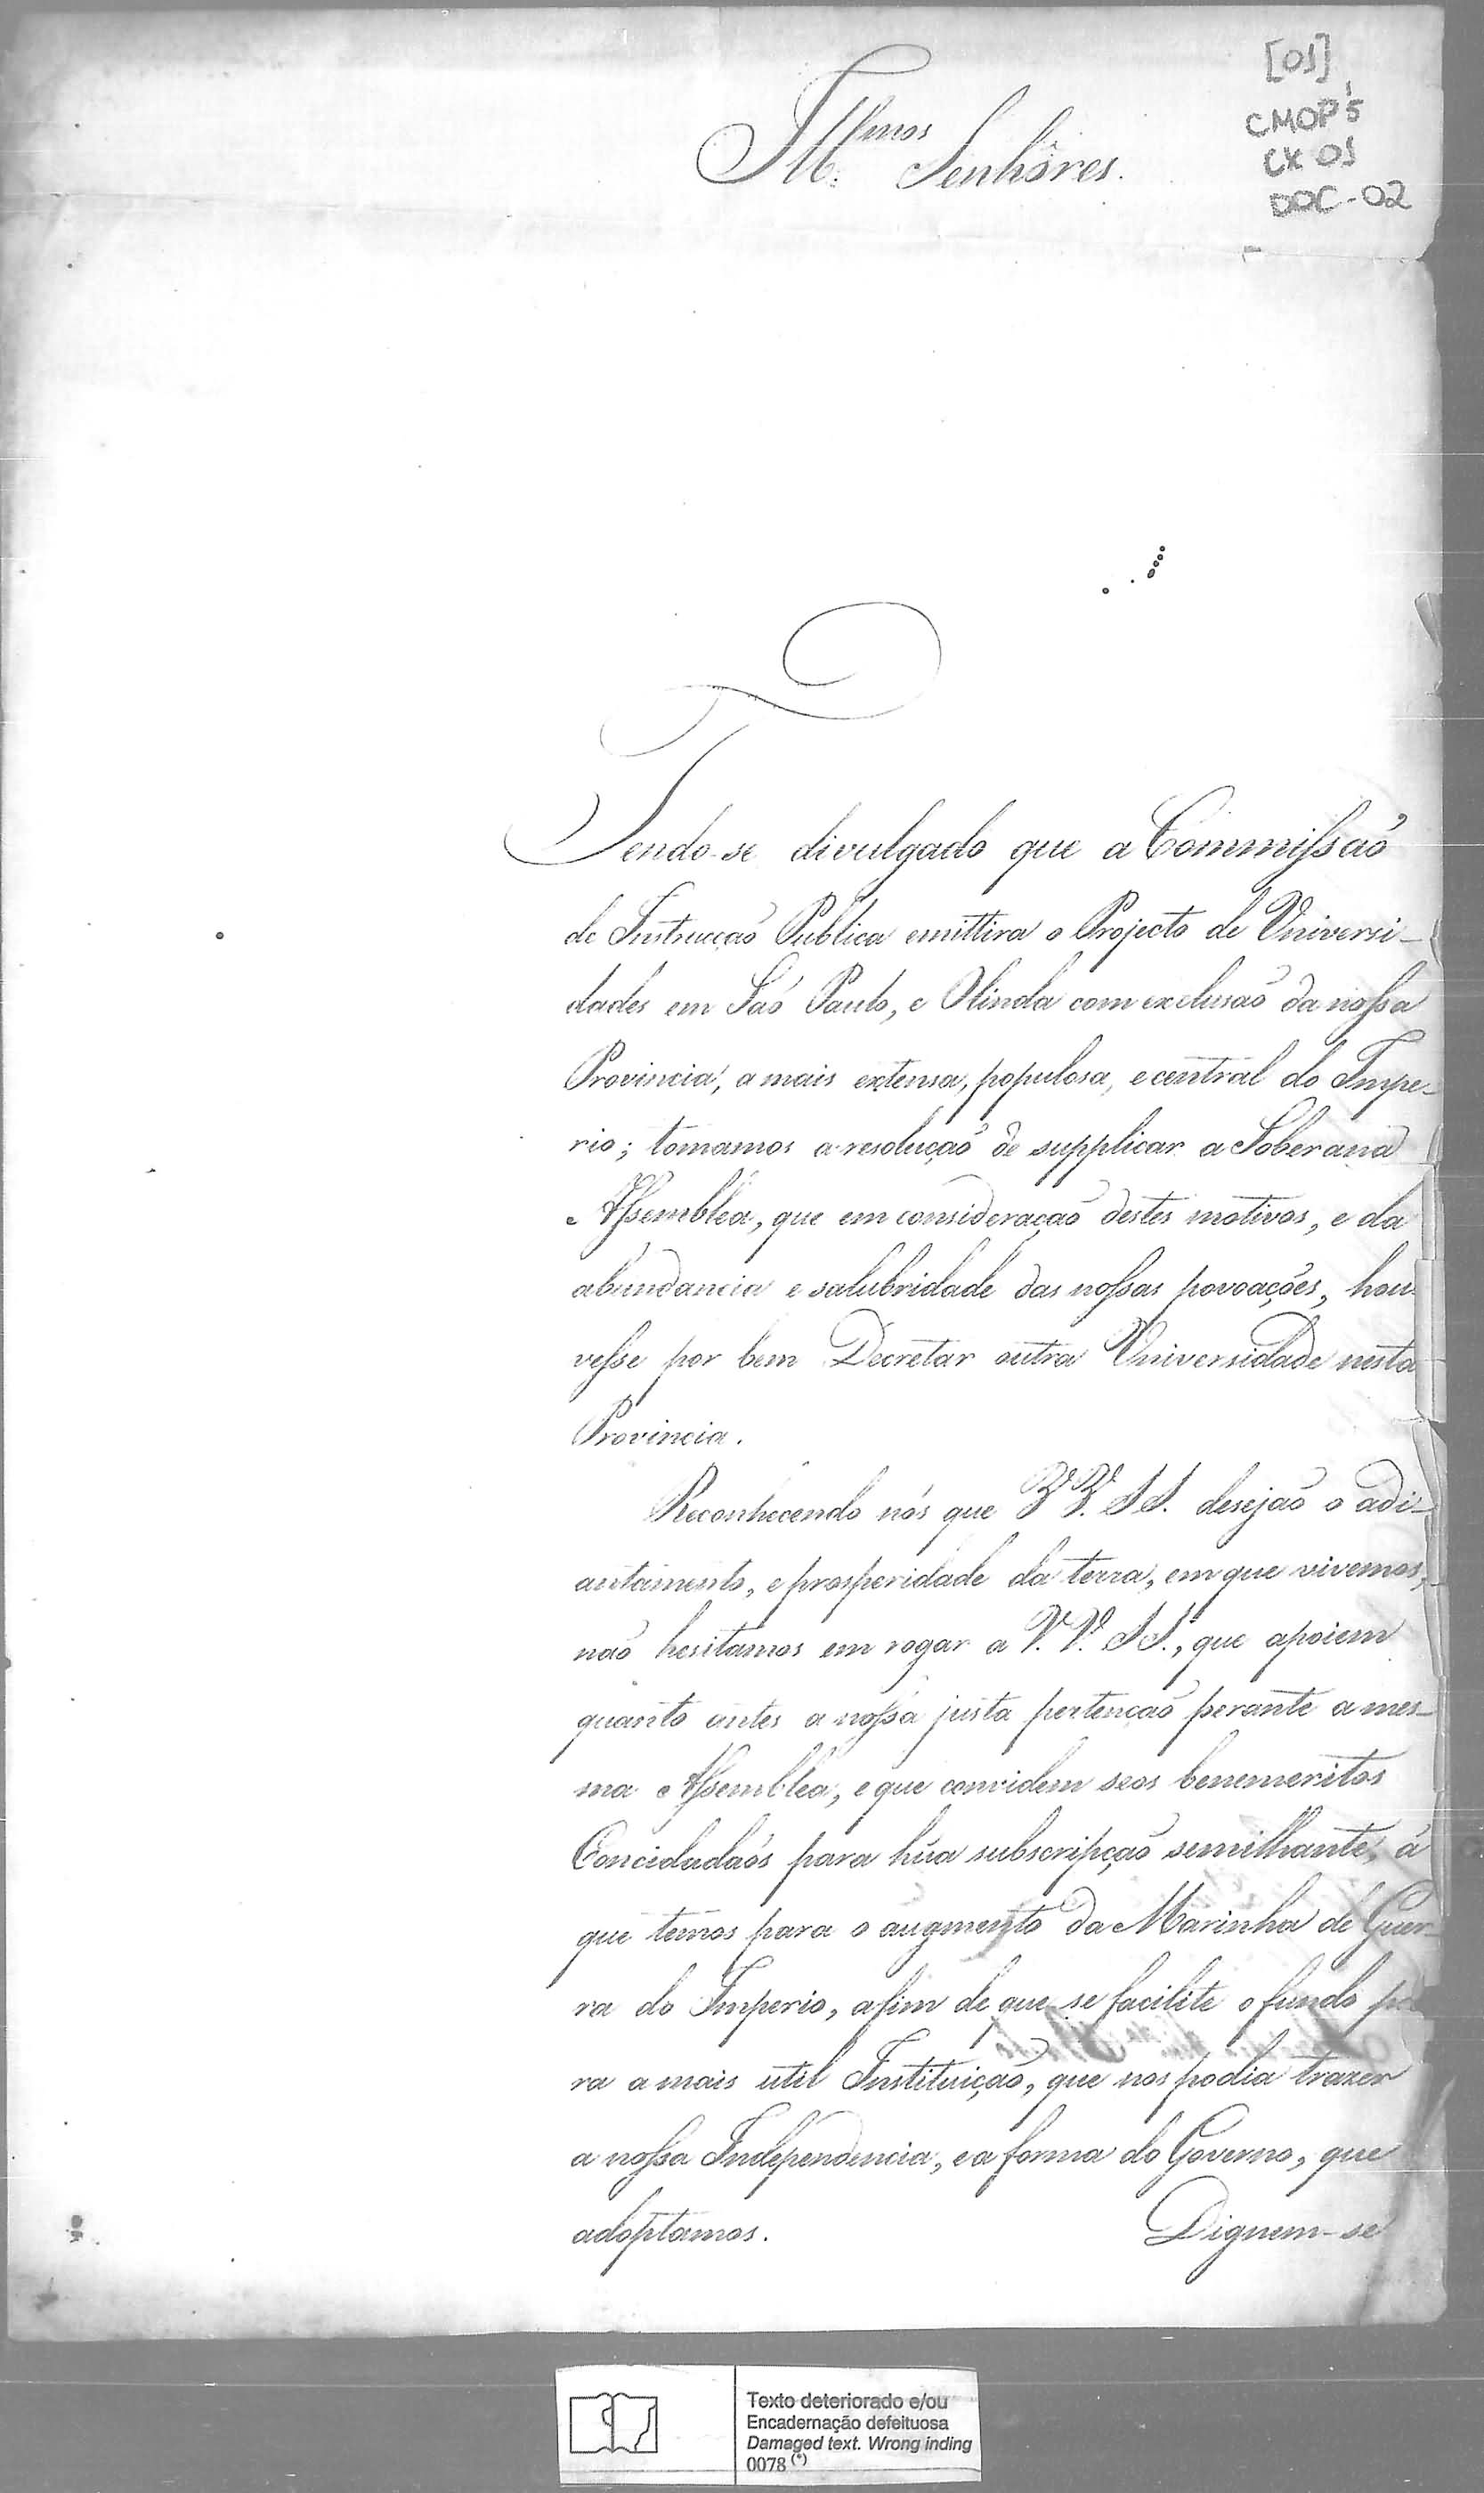 [01]
CMOP'5
CX 01
DOC-02
Ill.mos Senhôres.
Tendo-se divulgado que a Commissaõ
de Instrucçaõ Publica emittira o Projecto de Universi-
dades em Saõ Paulo, e Olinda com exclusaõ da nossa
Provincia, a mais extensa, populosa, e central do Impe-
rio; tomamos a resoluçaõ de supplicar a Soberana
Assembléa, que em consideraçaõ destes motivos, e da
abundancia e salubridade das nossas povoações, hou-
vesse por bem Decretar outra Universidade nesta
Provincia.
Reconhecendo nós que V.V. S.S. desejaõ o adi-
antamento, e prosperidade da terra, em que vivemos,
naõ hesitamos em rogar a V.V. S.S., que apoiem
quanto antes a nossa justa pertençaõ perante a mes-
ma Assemblea, e que convidem seos benemeritos
Concidadaõs para hũa subscripçaõ semilhante, á
que temos para o augmento da Marinha de Guer-
ra do Imperio, afim de que se facilite o fundo pa
ra a mais util Instituiçaõ, que nos podia trazer
a nossa Independencia, e a forma do Governo, que
adoptamos. Dignem-se
Texto deteriorado e/ou
Encadernação defeituosa
Damaged text. Wrong inding
0078 (*)